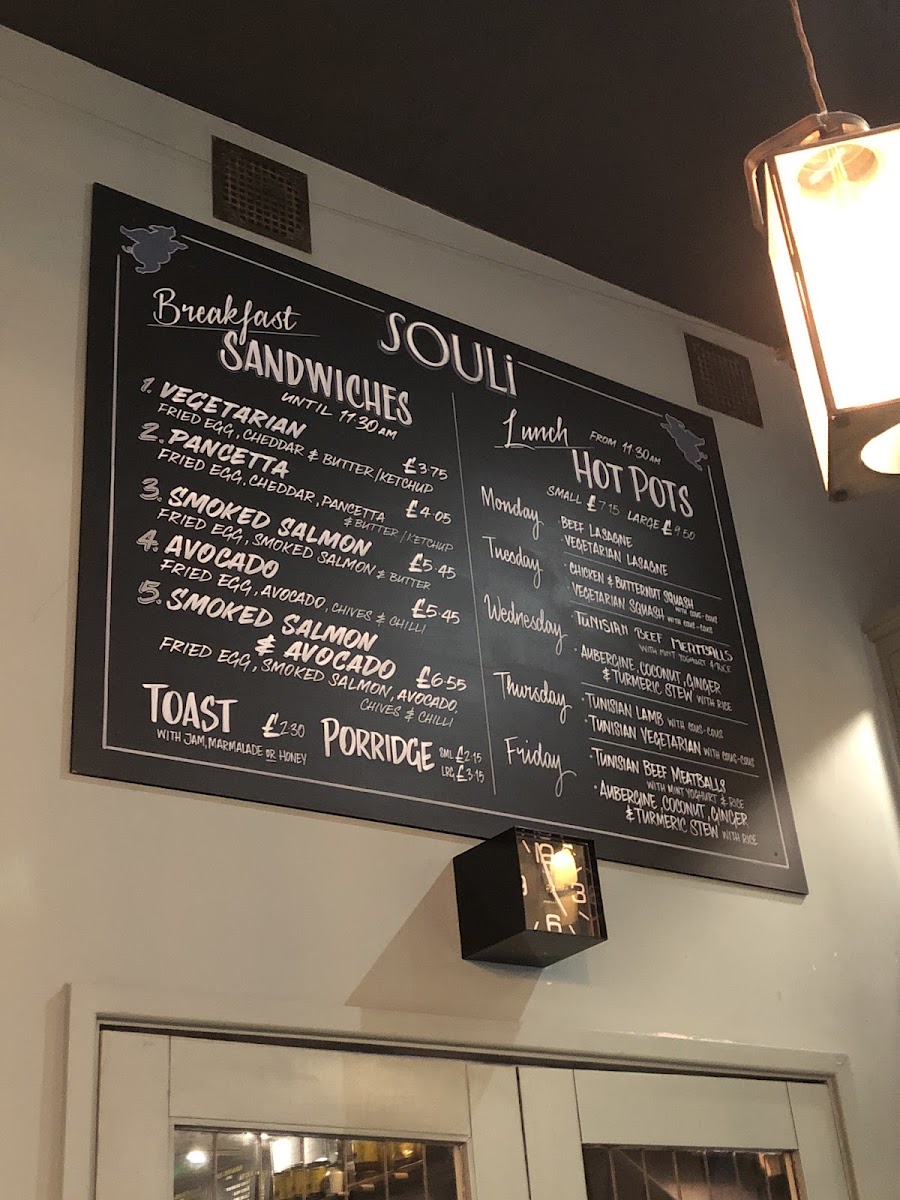 SOULi
Breakfast
SANDWICHES
UNTIL 11·30AM
1. VEGETARIAN £3·75
FRIED EGG, CHEDDAR & BUTTER/KETCHUP
2. PANCETTA £4·05
FRIED EGG, CHEDDAR, PANCETTA
& BUTTER/KETCHUP
3. SMOKED SALMON £5·45
FRIED EGG, SMOKED SALMON & BUTTER
4. AVOCADO £5·45
FRIED EGG, AVOCADO, CHIVES & CHILLI
5. SMOKED SALMON
& AVOCADO £6·55
FRIED EGG, SMOKED SALMON, AVOCADO,
CHIVES & CHILLI
TOAST £2·30
WITH JAM, MARMALADE OR HONEY
PORRIDGE SML £2·15
LRG £3·15
Lunch FROM 11·30AM
HOT POTS
SMALL £7·15 LARGE £9·50
Monday
·BEEF LASAGNE
·VEGETARIAN LASAGNE
Tuesday
·CHICKEN & BUTTERNUT SQUASH
WITH COUS-COUS
·VEGETARIAN SQUASH WITH COUS-COUS
Wednesday
·TUNISIAN BEEF MEATBALLS
WITH MINT YOGHURT & RICE
·AUBERGINE, COCONUT, GINGER
& TURMERIC STEW WITH RICE
Thursday
·TUNISIAN LAMB WITH COUS-COUS
·TUNISIAN VEGETARIAN WITH COUS-COUS
Friday
·TUNISIAN BEEF MEATBALLS
WITH MINT YOGHURT & RICE
·AUBERGINE, COCONUT, GINGER
& TURMERIC STEW WITH RICE
12
9 3
6